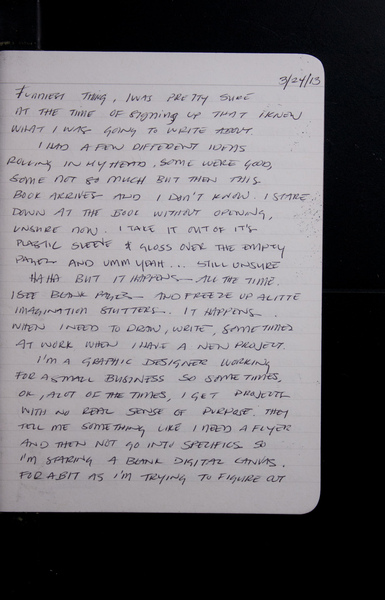 3/24/13
Funniest thing, I was pretty sure
at the time of signing up that I knew
what I was going to write about.
I had a few different ideas
rolling in my head, some were good,
some not so much but then this
book arrives and I don't know. I stare
down at the book without opening,
unsure now. I take it out of it's
plastic sleeve & gloss over the empty
pages and umm yeah... still unsure
haha but it happens all the time.
I see blank pages and freeze up a litte
imagination stutters. It happens
when I need to draw, write, sometimes
at work when I have a new project.
I'm a graphic designer working
for a small business so sometimes,
ok, alot of the times, I get projects
with no real sense of purpose. They
tell me something like I need a flyer
and then not go into specifics so
I'm staring a blank digital canvas.
For a bit as I'm trying to figure out